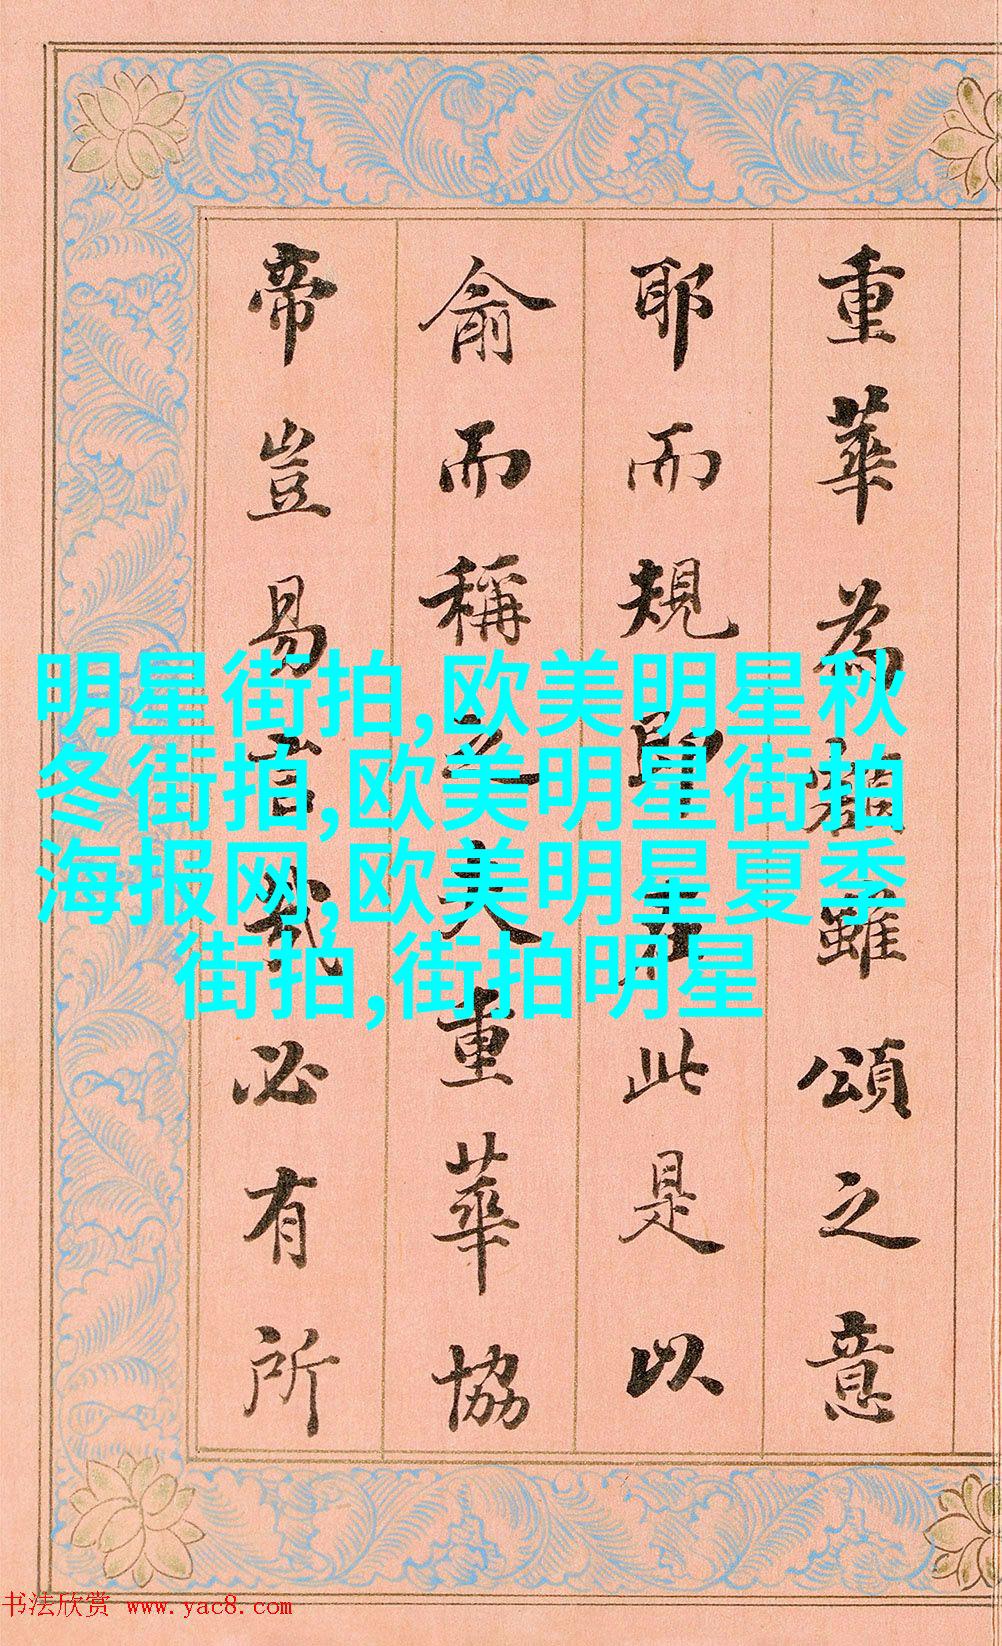 重華為雖頌之意
耶而規此是以
俞而稱之大重華協
帝豈易言哉必有所
明星街拍,欧美明星秋
冬街拍,欧美明星街拍
海报网,欧美明星夏季
街拍,街拍明星
书法欣赏 www.yac8.com